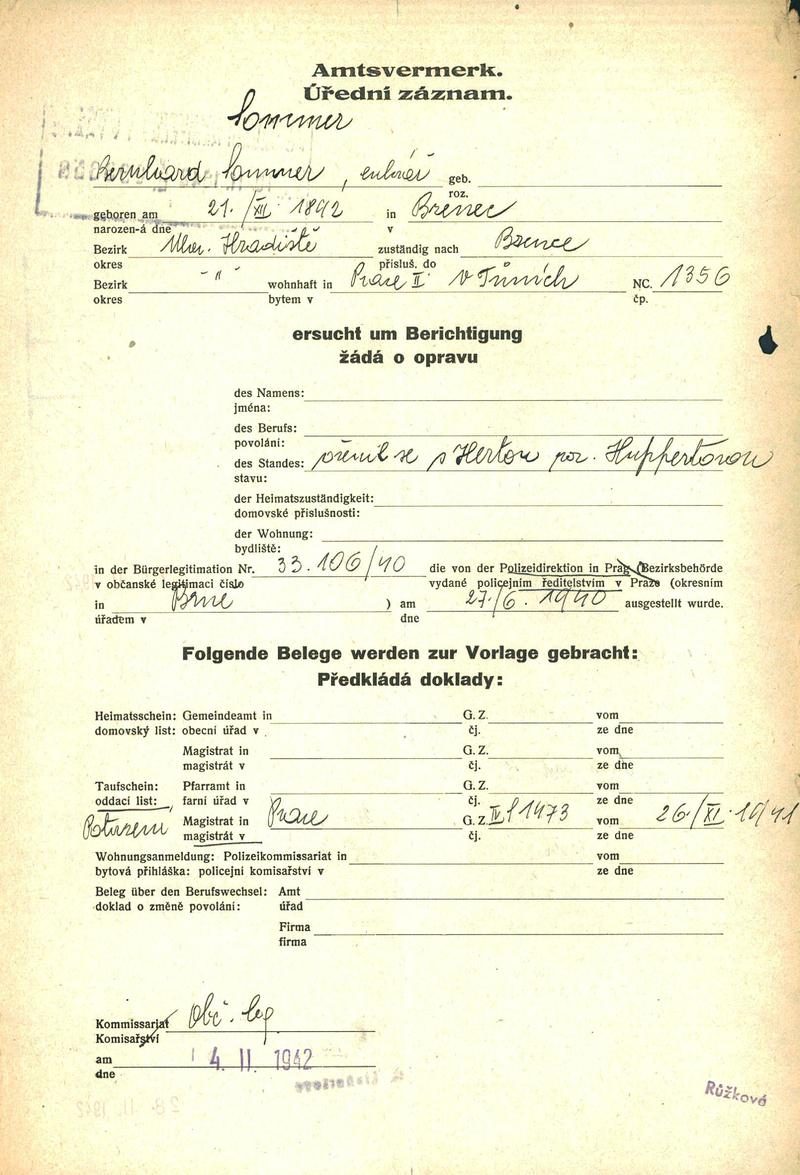 Amtsvermerk.
Úřední záznam.
Sommer
Bernhard Sommer, geb.
roz.
geboren am 21./XII 1892 in Bzenec
narozen-á dne v
Bezirk Uher. Hradiště zuständig nach Bzence
okres přísluš. do
Bezirk -"- wohnhaft in Praze II. V Tůních NC. 1356
okres bytem v čp.
ersucht um Berichtigung
žádá o opravu
des Namens:
jména:
des Berufs:
povolání:
des Standes: oženil se s Hertou roz. Huppertovou
stavu:
der Heimatszuständigkeit:
domovské příslušnosti:
der Wohnung:
bydliště:
in der Bürgerlegitimation Nr. 33.106/40 die von der Polizeidirektion in Prag (Bezirksbehörde
v občanské legitimaci číslo vydané policejním ředitelstvím v Praze (okresním
in Brně ) am 27./6. 1940 ausgestellt wurde.
úřadem v dne
Folgende Belege werden zur Vorlage gebracht:
Předkládá doklady:
Heimatsschein: Gemeindeamt in G. Z. vom
domovský list: obecní úřad v čj. ze dne
Magistrat in G. Z. vom
magistrát v čj. ze dne
Taufschein: Pfarramt in G. Z. vom
oddací list: farní úřad v čj. ze dne
Potvrzení Magistrat in Praze G. Z. IV/1473 vom 26/XI. 1941
magistrát v čj. ze dne
Wohnungsanmeldung: Polizeikommissariat in vom
bytová přihláška: policejní komisařství v ze dne
Beleg über den Berufswechsel: Amt
doklad o změně povolání: úřad
Firma
firma
Kommissariat Obč. leg
Komisařství
am 4. II. 1942
dne
Růžková